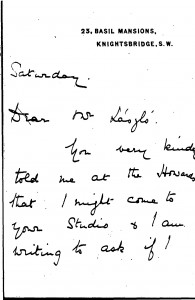 25, BASIL MANSIONS,
KNIGHTSBRIDGE, S.W.
Saturday.
Dear Mr László.
You very kindly
told me at the Howards
that I might come to
your Studio & I am
writing to ask if I